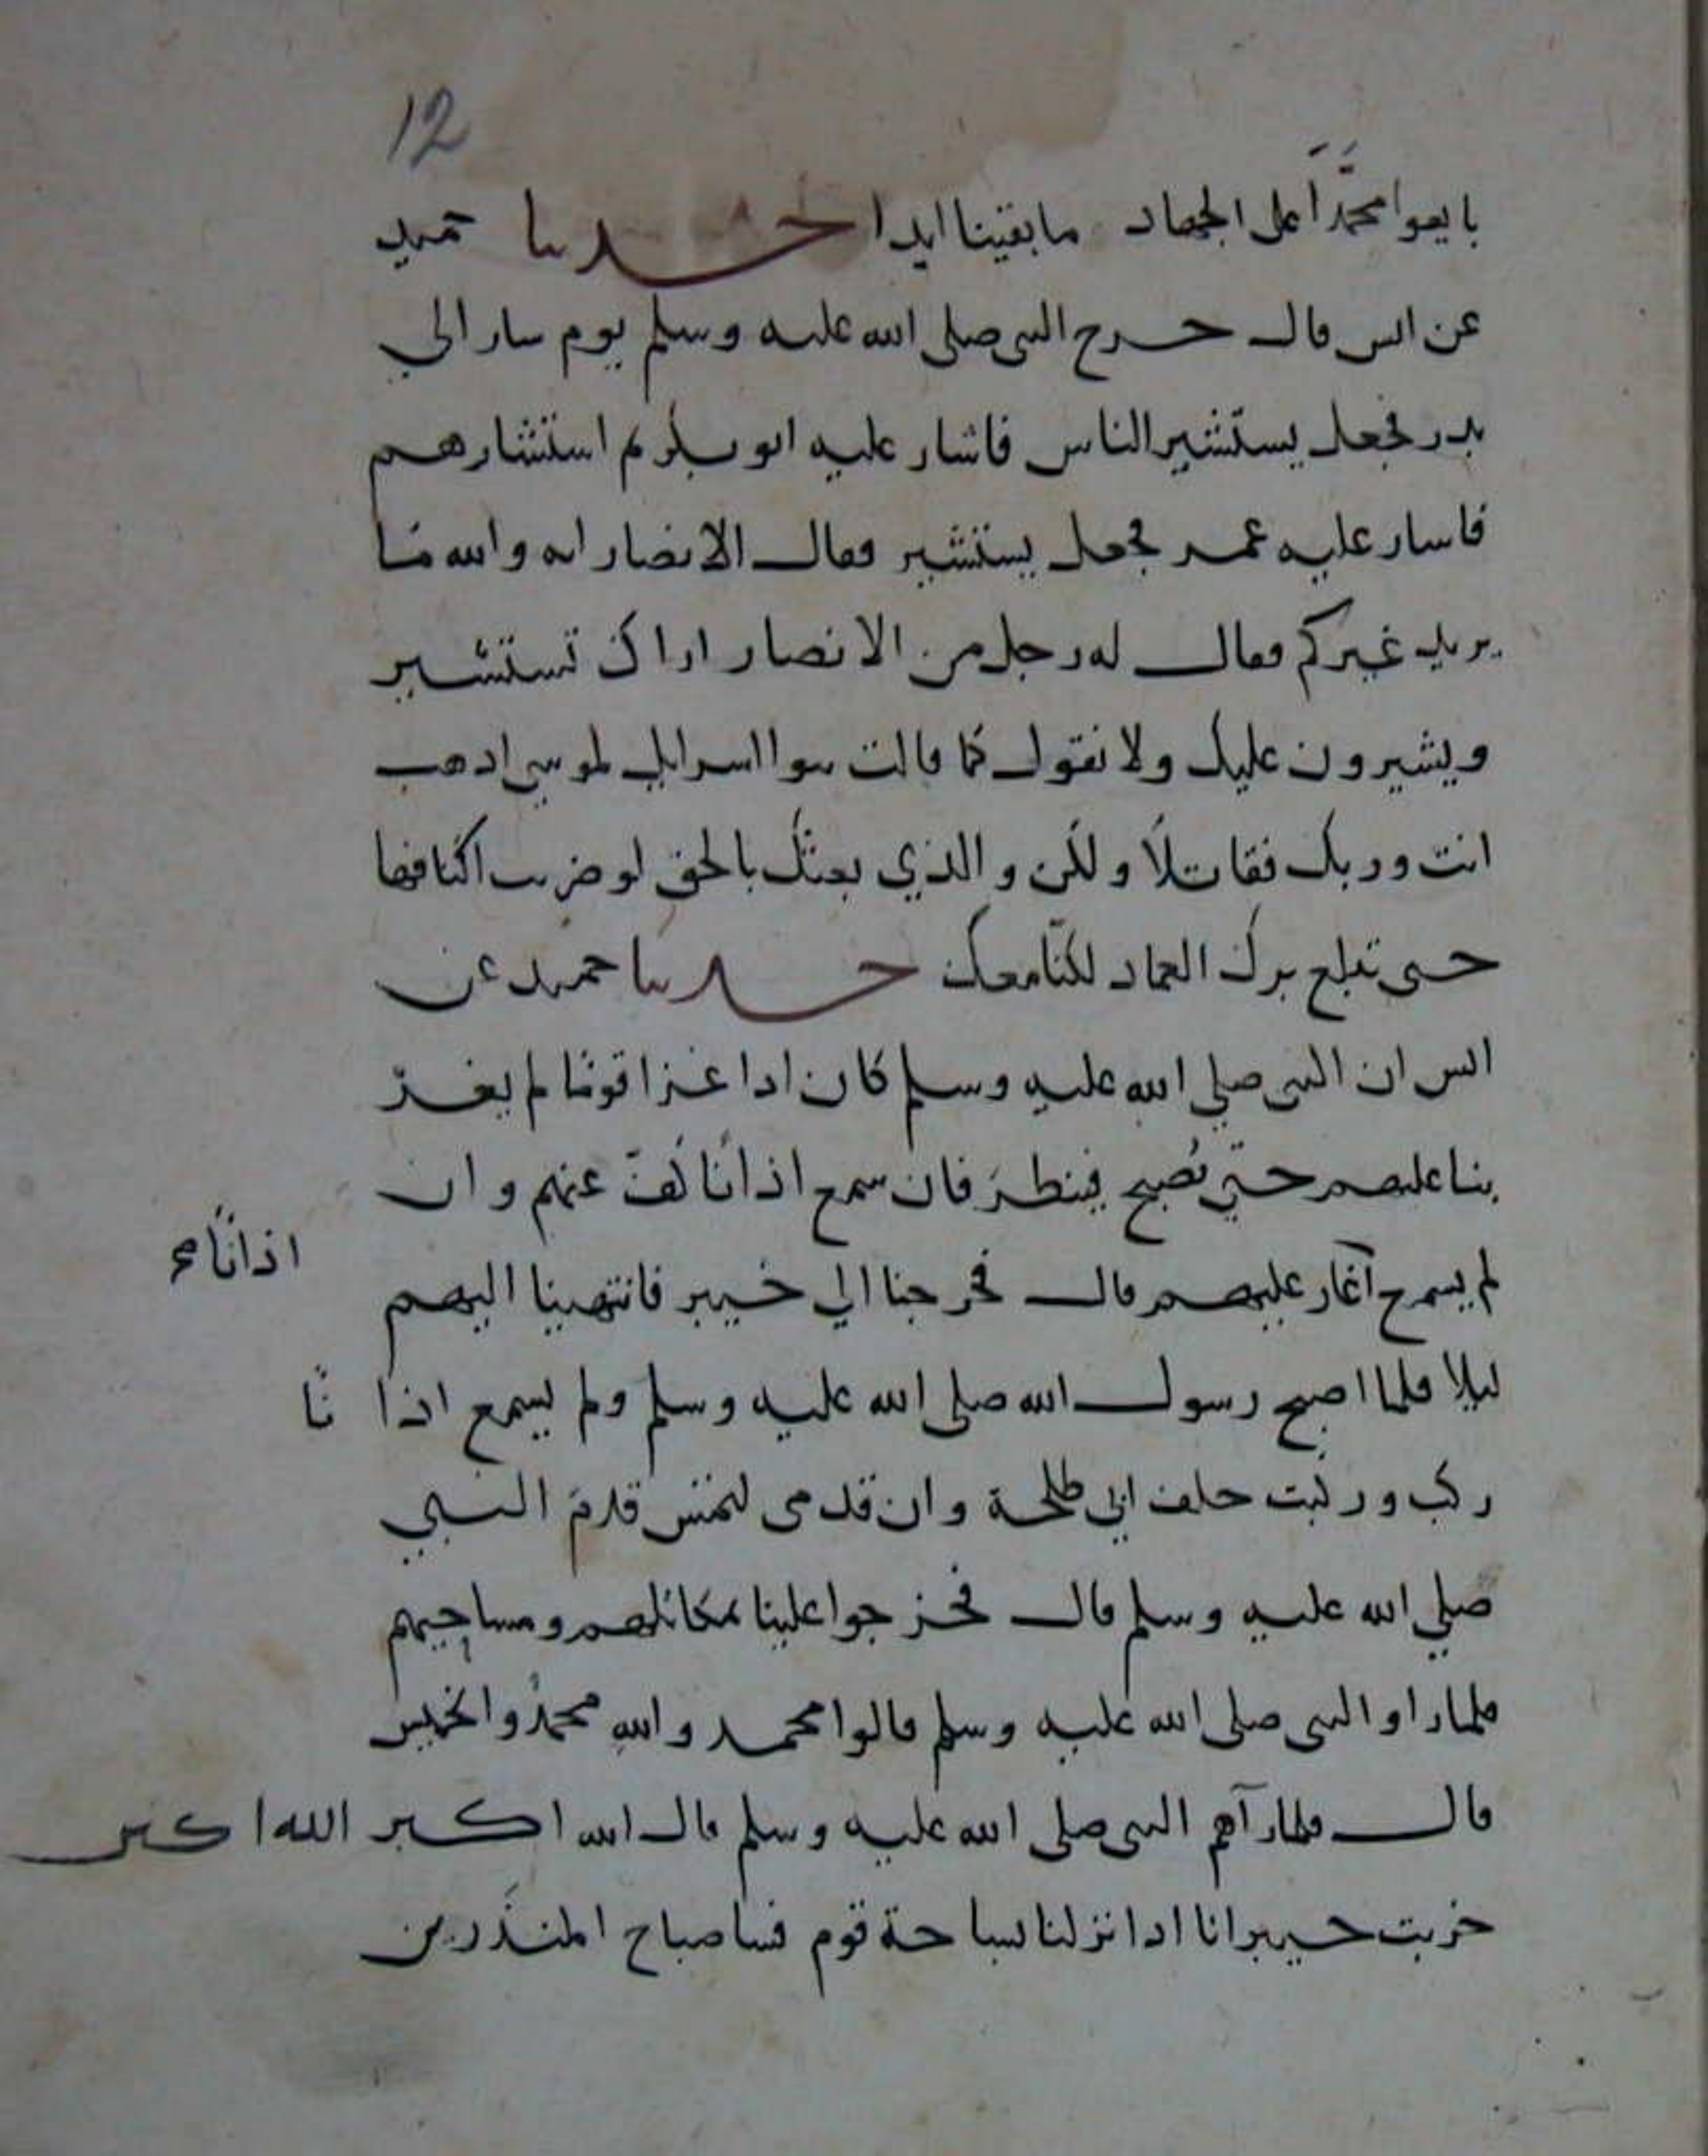 12
بايعوا محمَّدًا على الجهاد ما بقينا ابدا حدثنا حميد
عن انس قال خرج النبي صلى الله عليه وسلم يوم سار الي
بدر فجعل يستشير الناس فاشار عليه ابو بكر ثم استشارهم
فاشار عليه عمر فجعل يستشير فقال الانصار انه والله مَا
يريد غيركم فقال له رجل من الانصار اراك تستشير
ويشيرون عليك ولا نقول كما قالت بنوا اسرايل لموسي اذهب
انت وربك فقاتلَا ولكن والذي بعثك بالحق لو ضربت اكنافها
حتى تبلغ برك الغماد لكنّا معك حدثنا حميد عن
انس ان النبي صلي الله عليه وسلم كان اذا غزا قومًا لم يغز
بنا عليهم حتي يُصبح فينظرَ فان سمع اذانًا كفّ عنهم وان
اذانًا صح
لم يسمع آغار عليهم قال فخرجنا الي خيبر فانتهينا اليهم
ليلا فلما اصبح رسول الله صلى الله عليه وسلم ولم يسمع اذا نًا
ركب وركبت خلف ابي طلحة وان قدمى لتمس قدمَ النبي
صلي الله عليه وسلم قال فخرجوا علينا بمكاتلهم ومساحيهم
فلما راوا النبي صلى الله عليه وسلم قالوا محمد واللهِ محمدٌ والخميس
قال فلما رآهم النبي صلى الله عليه وسلم قال الله اكبر الله اكبر
خربت خيبر انا اذا نزلنا بساحة قوم فسا صباح المنذَرين